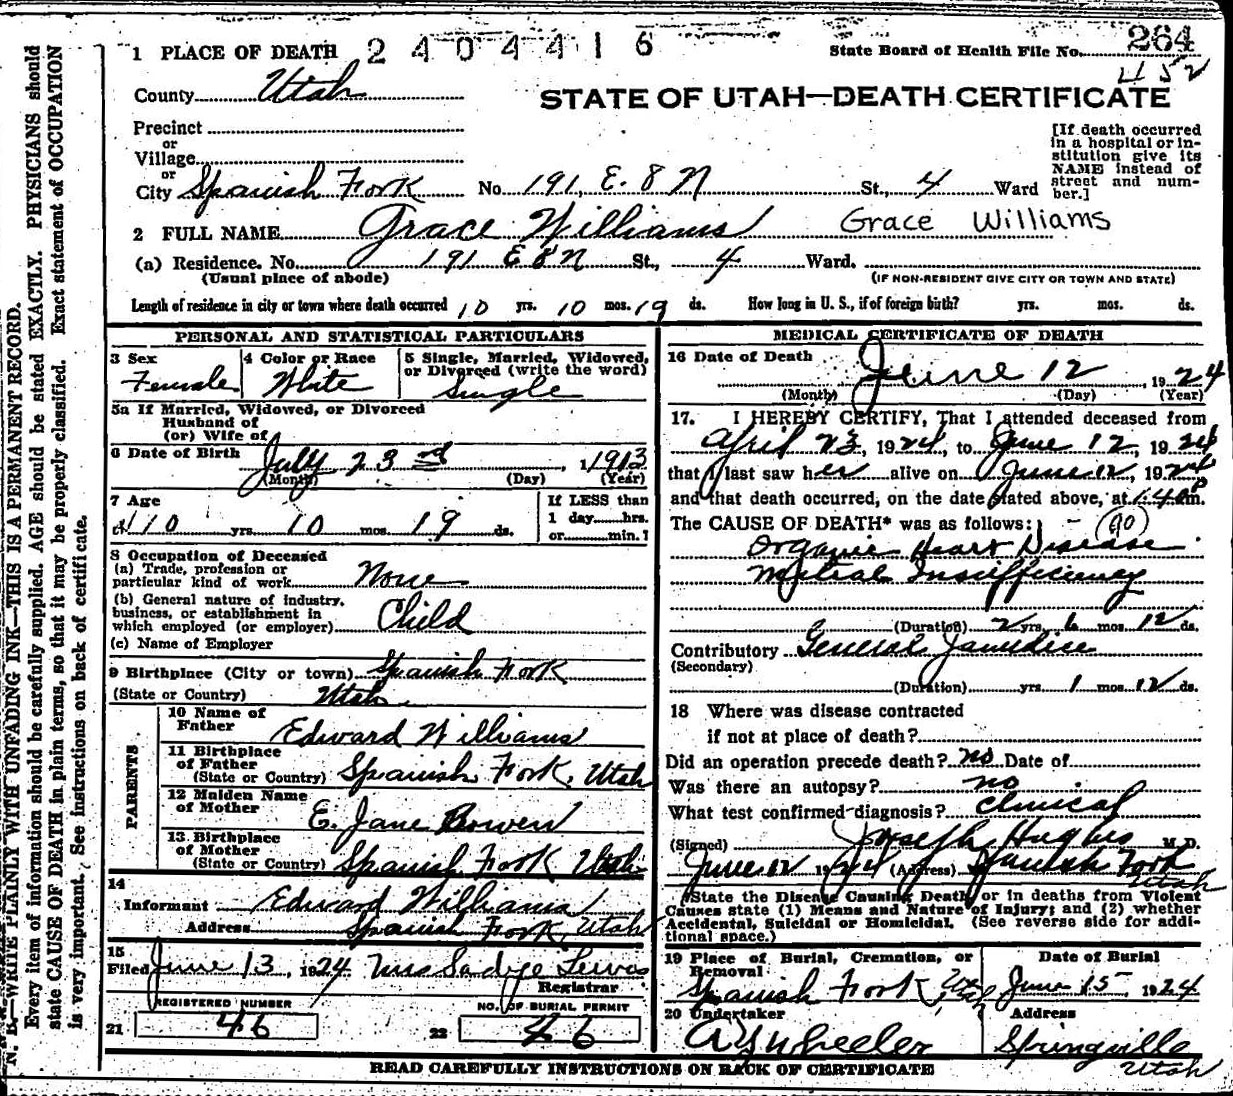 1 PLACE OF DEATH 2404416
State Board of Health File No. 264
452
County Utah
STATE OF UTAH—DEATH CERTIFICATE
Precinct
or
Village
or
City Spanish Fork No. 191, E. 8 N St., 4 Ward
[If death occurred
in a hospital or in-
stitution give its
NAME instead of
street and num-
ber.]
2 FULL NAME Grace Williams Grace Williams
(a) Residence. No. 191 E 8 N St., 4 Ward.
(Usual place of abode) (IF NON-RESIDENT GIVE CITY OR TOWN AND STATE)
Length of residence in city or town where death occurred 10 yrs. 10 mos. 19 ds. How long in U. S., if of foreign birth? yrs. mos. ds.
PERSONAL AND STATISTICAL PARTICULARS
3 Sex Female
4 Color or Race White
5 Single, Married, Widowed,
or Divorced (write the word)
Single
5a If Married, Widowed, or Divorced
Husband of
(or) Wife of
6 Date of Birth July 23rd, 1913
(Month) (Day) (Year)
7 Age
10 yrs. 10 mos. 19 ds.
If LESS than
1 day hrs.
or min.]
8 Occupation of Deceased
(a) Trade, profession or
particular kind of work None
(b) General nature of industry,
business, or establishment in
which employed (or employer) Child
(c) Name of Employer
9 Birthplace (City or town) Spanish Fork
(State or Country) Utah
PARENTS
10 Name of
Father Edward Williams
11 Birthplace
of Father
(State or Country) Spanish Fork, Utah
12 Maiden Name
of Mother E. Jane Bowen
13 Birthplace
of Mother
(State or Country) Spanish Fork Utah
14
Informant Edward Williams
Address Spanish Fork, Utah
15
Filed June 13, 1924 Mrs Sadye Lewis
Registrar
REGISTERED NUMBER
21 46
NO. OF BURIAL PERMIT
22 46
MEDICAL CERTIFICATE OF DEATH
16 Date of Death June 12, 1924
(Month) (Day) (Year)
17. I HEREBY CERTIFY, That I attended deceased from
April 23, 1924, to June 12, 1924
that I last saw her alive on June 12, 1924
and that death occurred, on the date stated above, at 1:40 Pm.
The CAUSE OF DEATH* was as follows: 90
Organic Heart Disease
Mitral Insufficiency
(Duration) 2 yrs. 6 mos. 12 ds.
Contributory General Jaundice
(Secondary)
(Duration) yrs. 1 mos. 12 ds.
18 Where was disease contracted
if not at place of death?
Did an operation precede death? no Date of
Was there an autopsy? no
What test confirmed diagnosis? Clinical
(Signed) Joseph Hughes M.D.
June 12 1924 (Address) Spanish Fork
Utah
*State the Disease Causing Death, or in deaths from Violent
Causes state (1) Means and Nature of Injury; and (2) whether
Accidental, Suicidal or Homicidal. (See reverse side for addi-
tional space.)
19 Place of Burial, Cremation, or
Removal
Spanish Fork, Utah
Date of Burial
June 15 1924
20 Undertaker
A Y Wheeler
Address
Springville
Utah
READ CAREFULLY INSTRUCTIONS ON BACK OF CERTIFICATE
N. B.—WRITE PLAINLY WITH UNFADING INK—THIS IS A PERMANENT RECORD.
Every item of information should be carefully supplied. AGE should be stated EXACTLY. PHYSICIANS should
state CAUSE OF DEATH in plain terms, so that it may be properly classified. Exact statement of OCCUPATION
is very important. See instructions on back of certificate.